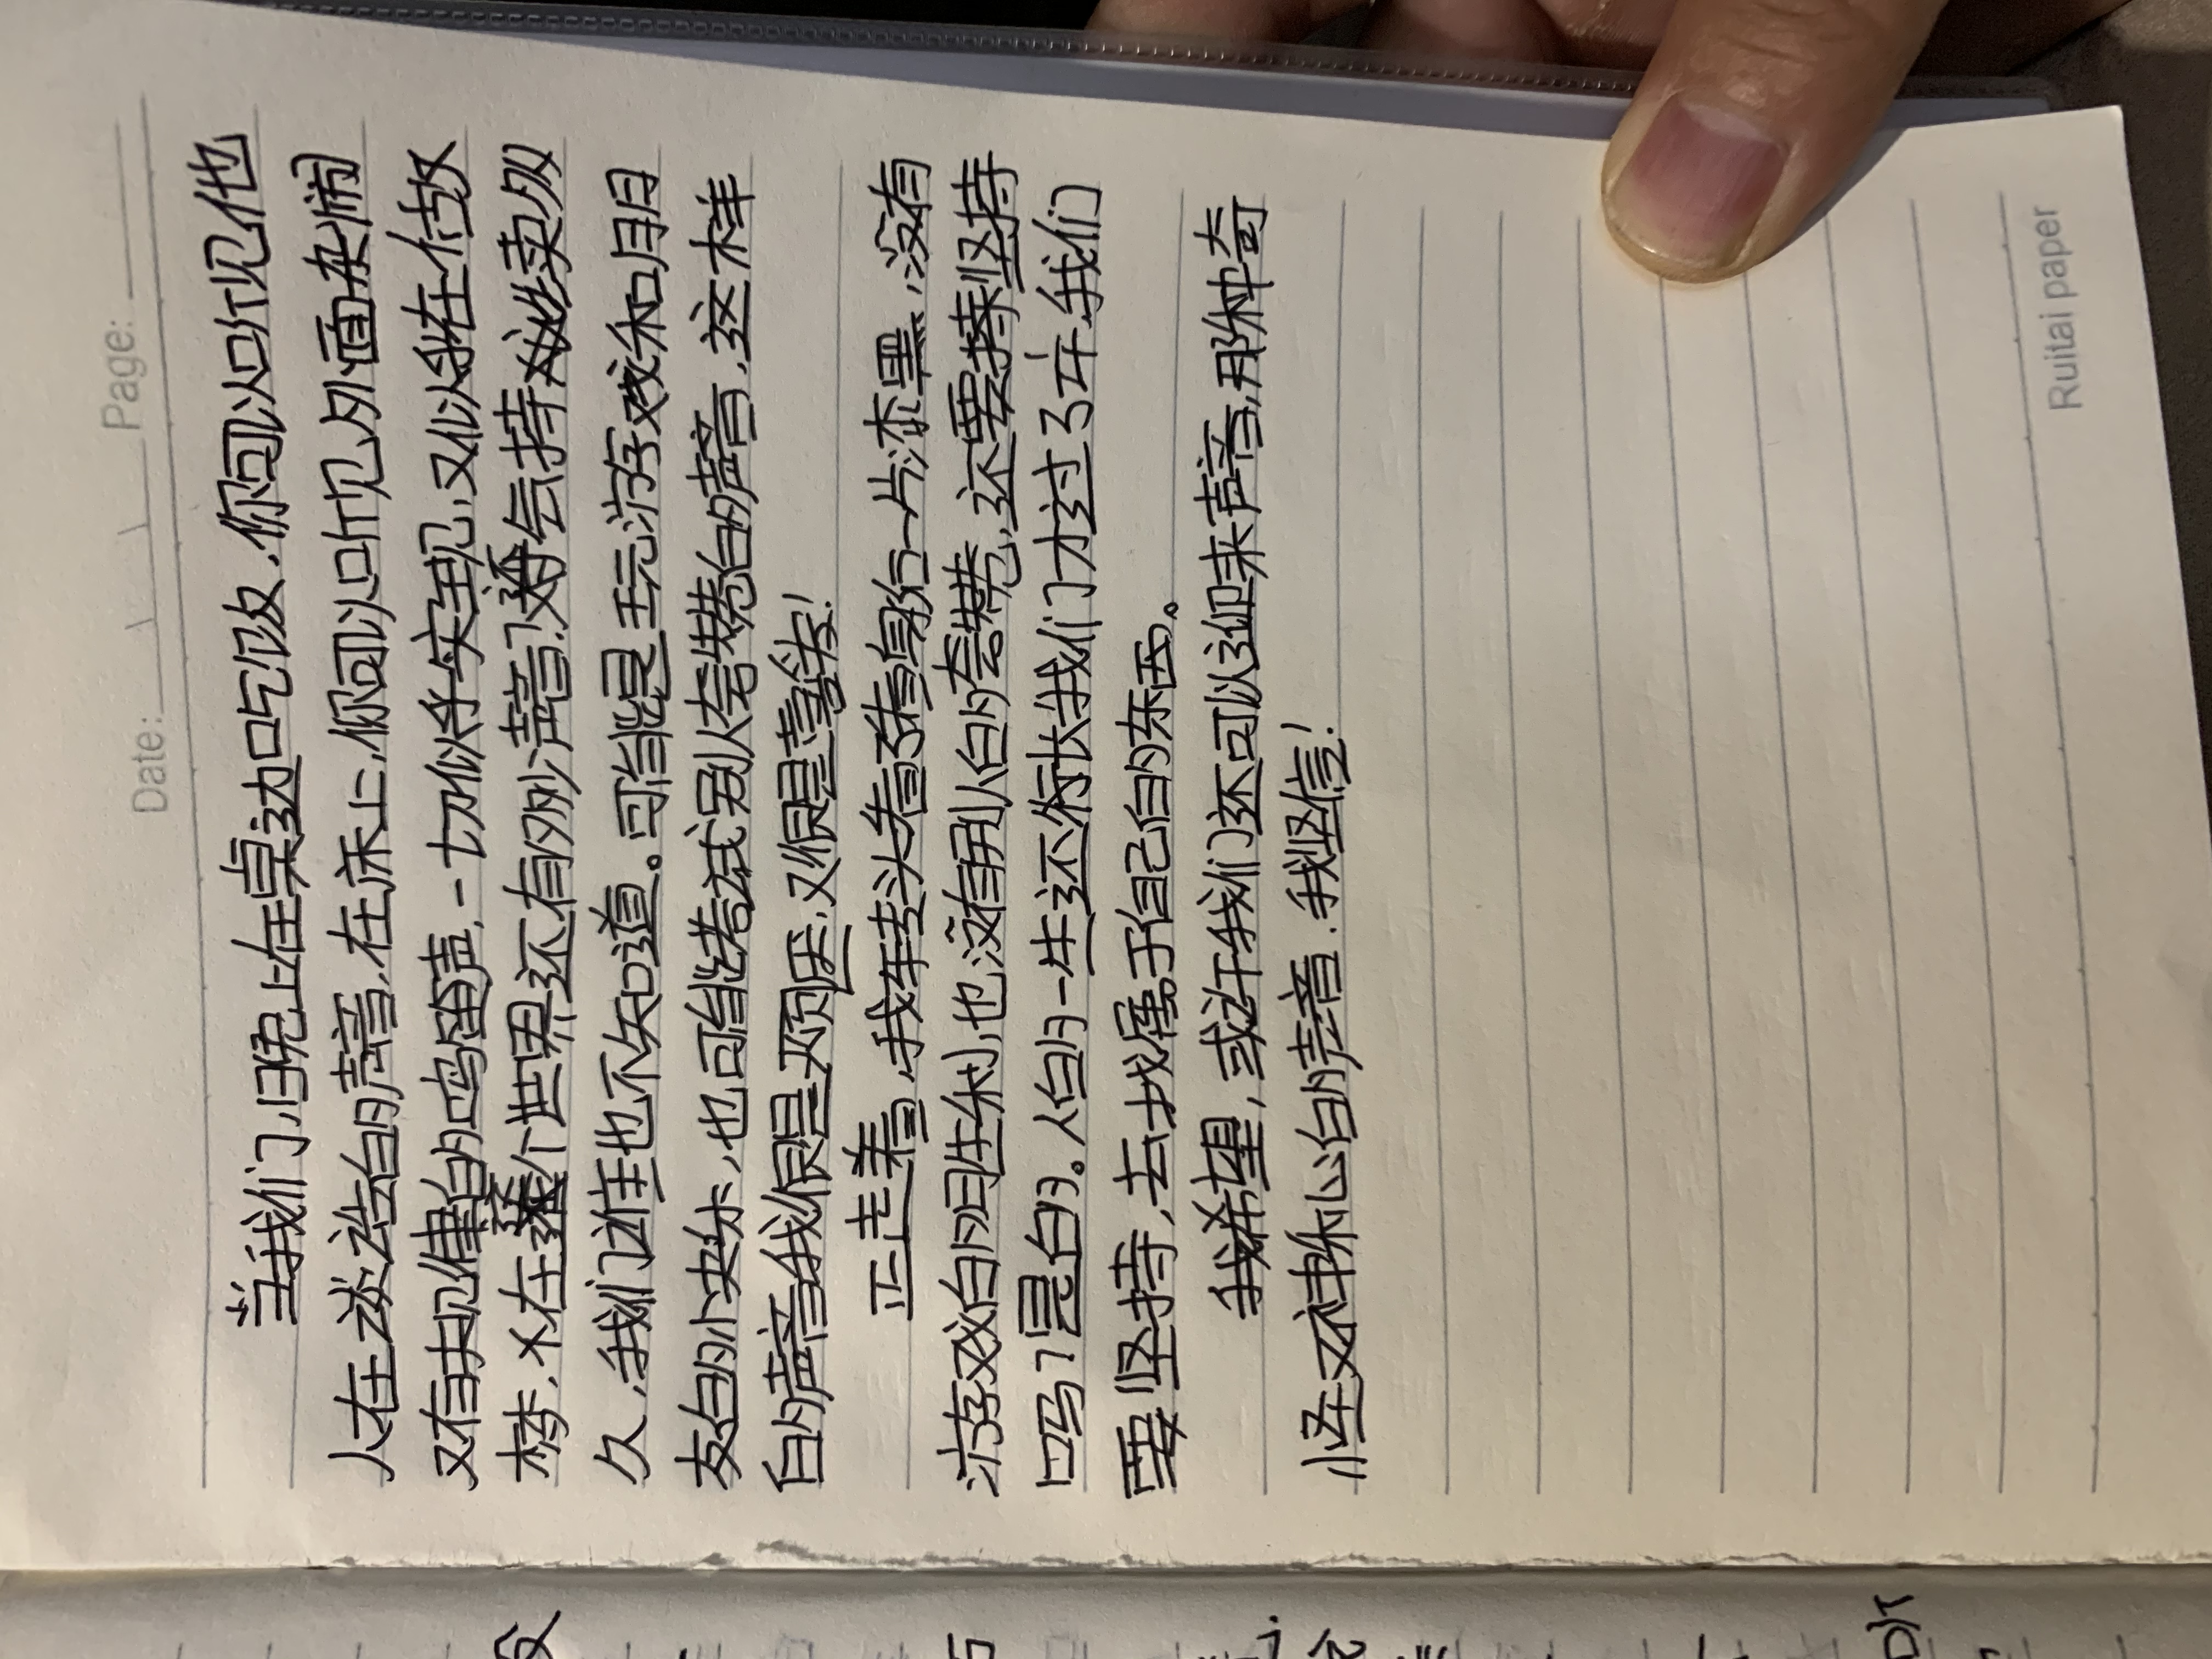 Date: Page:
当我们,晚上在桌边吃饭,你可以听见他
人在谈话的声音,在床上,你可以听见外面杂闹
又有规律的鸣笛声,一切似乎实现,又似在做
梦,不在整个世界还有多少声音,没会持续多
久,我们谁也不知道。可能是玩游戏和朋
友的小快乐,也可能尝试别人夸赞的声音,这样
的声音我很是顾恶,又很是喜欢!
正走着,我转头看着身后一片漆黑,没有
游戏的胜利,也没有别人的夸赞,还要坚持
吗?是的。人的一生还很长我们才过了一半,我们
要坚持,去找属于自己的东西。
我希望,或许我们还可以迎来声音,那种奇
怪又神秘的声音,我坚信!
Ruitai paper